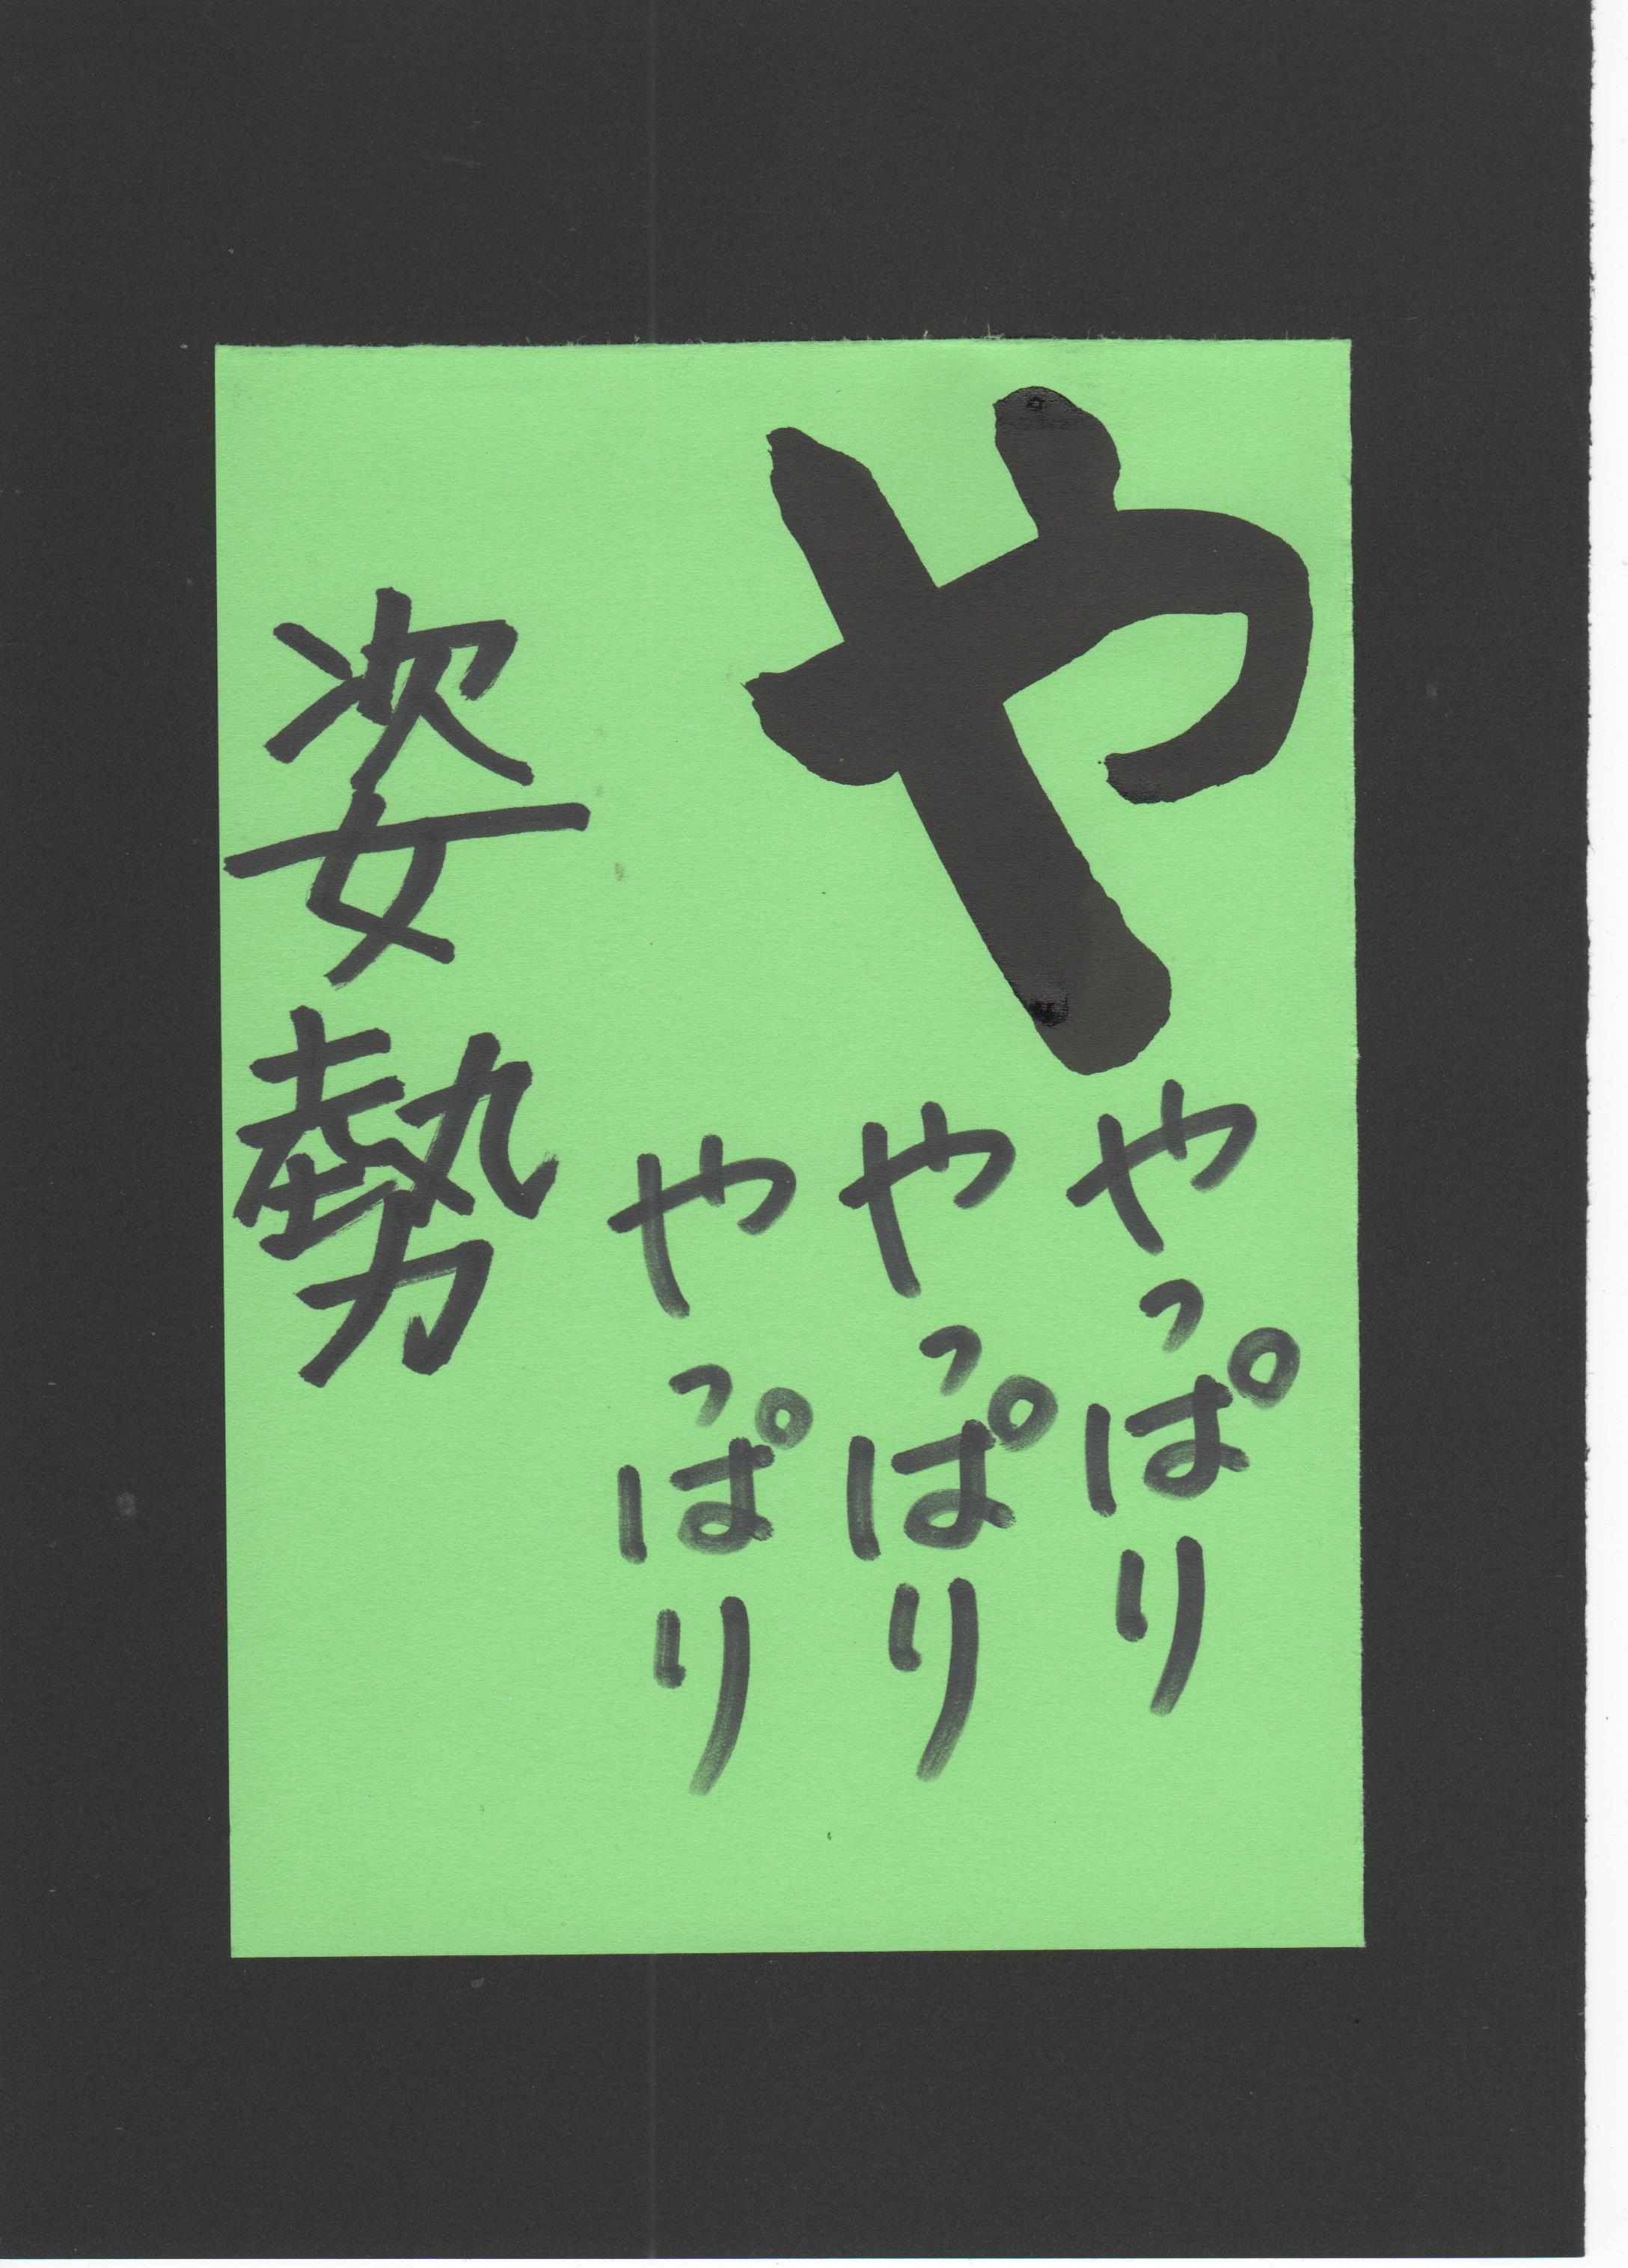 や
やっぱり
やっぱり
やっぱり
姿勢